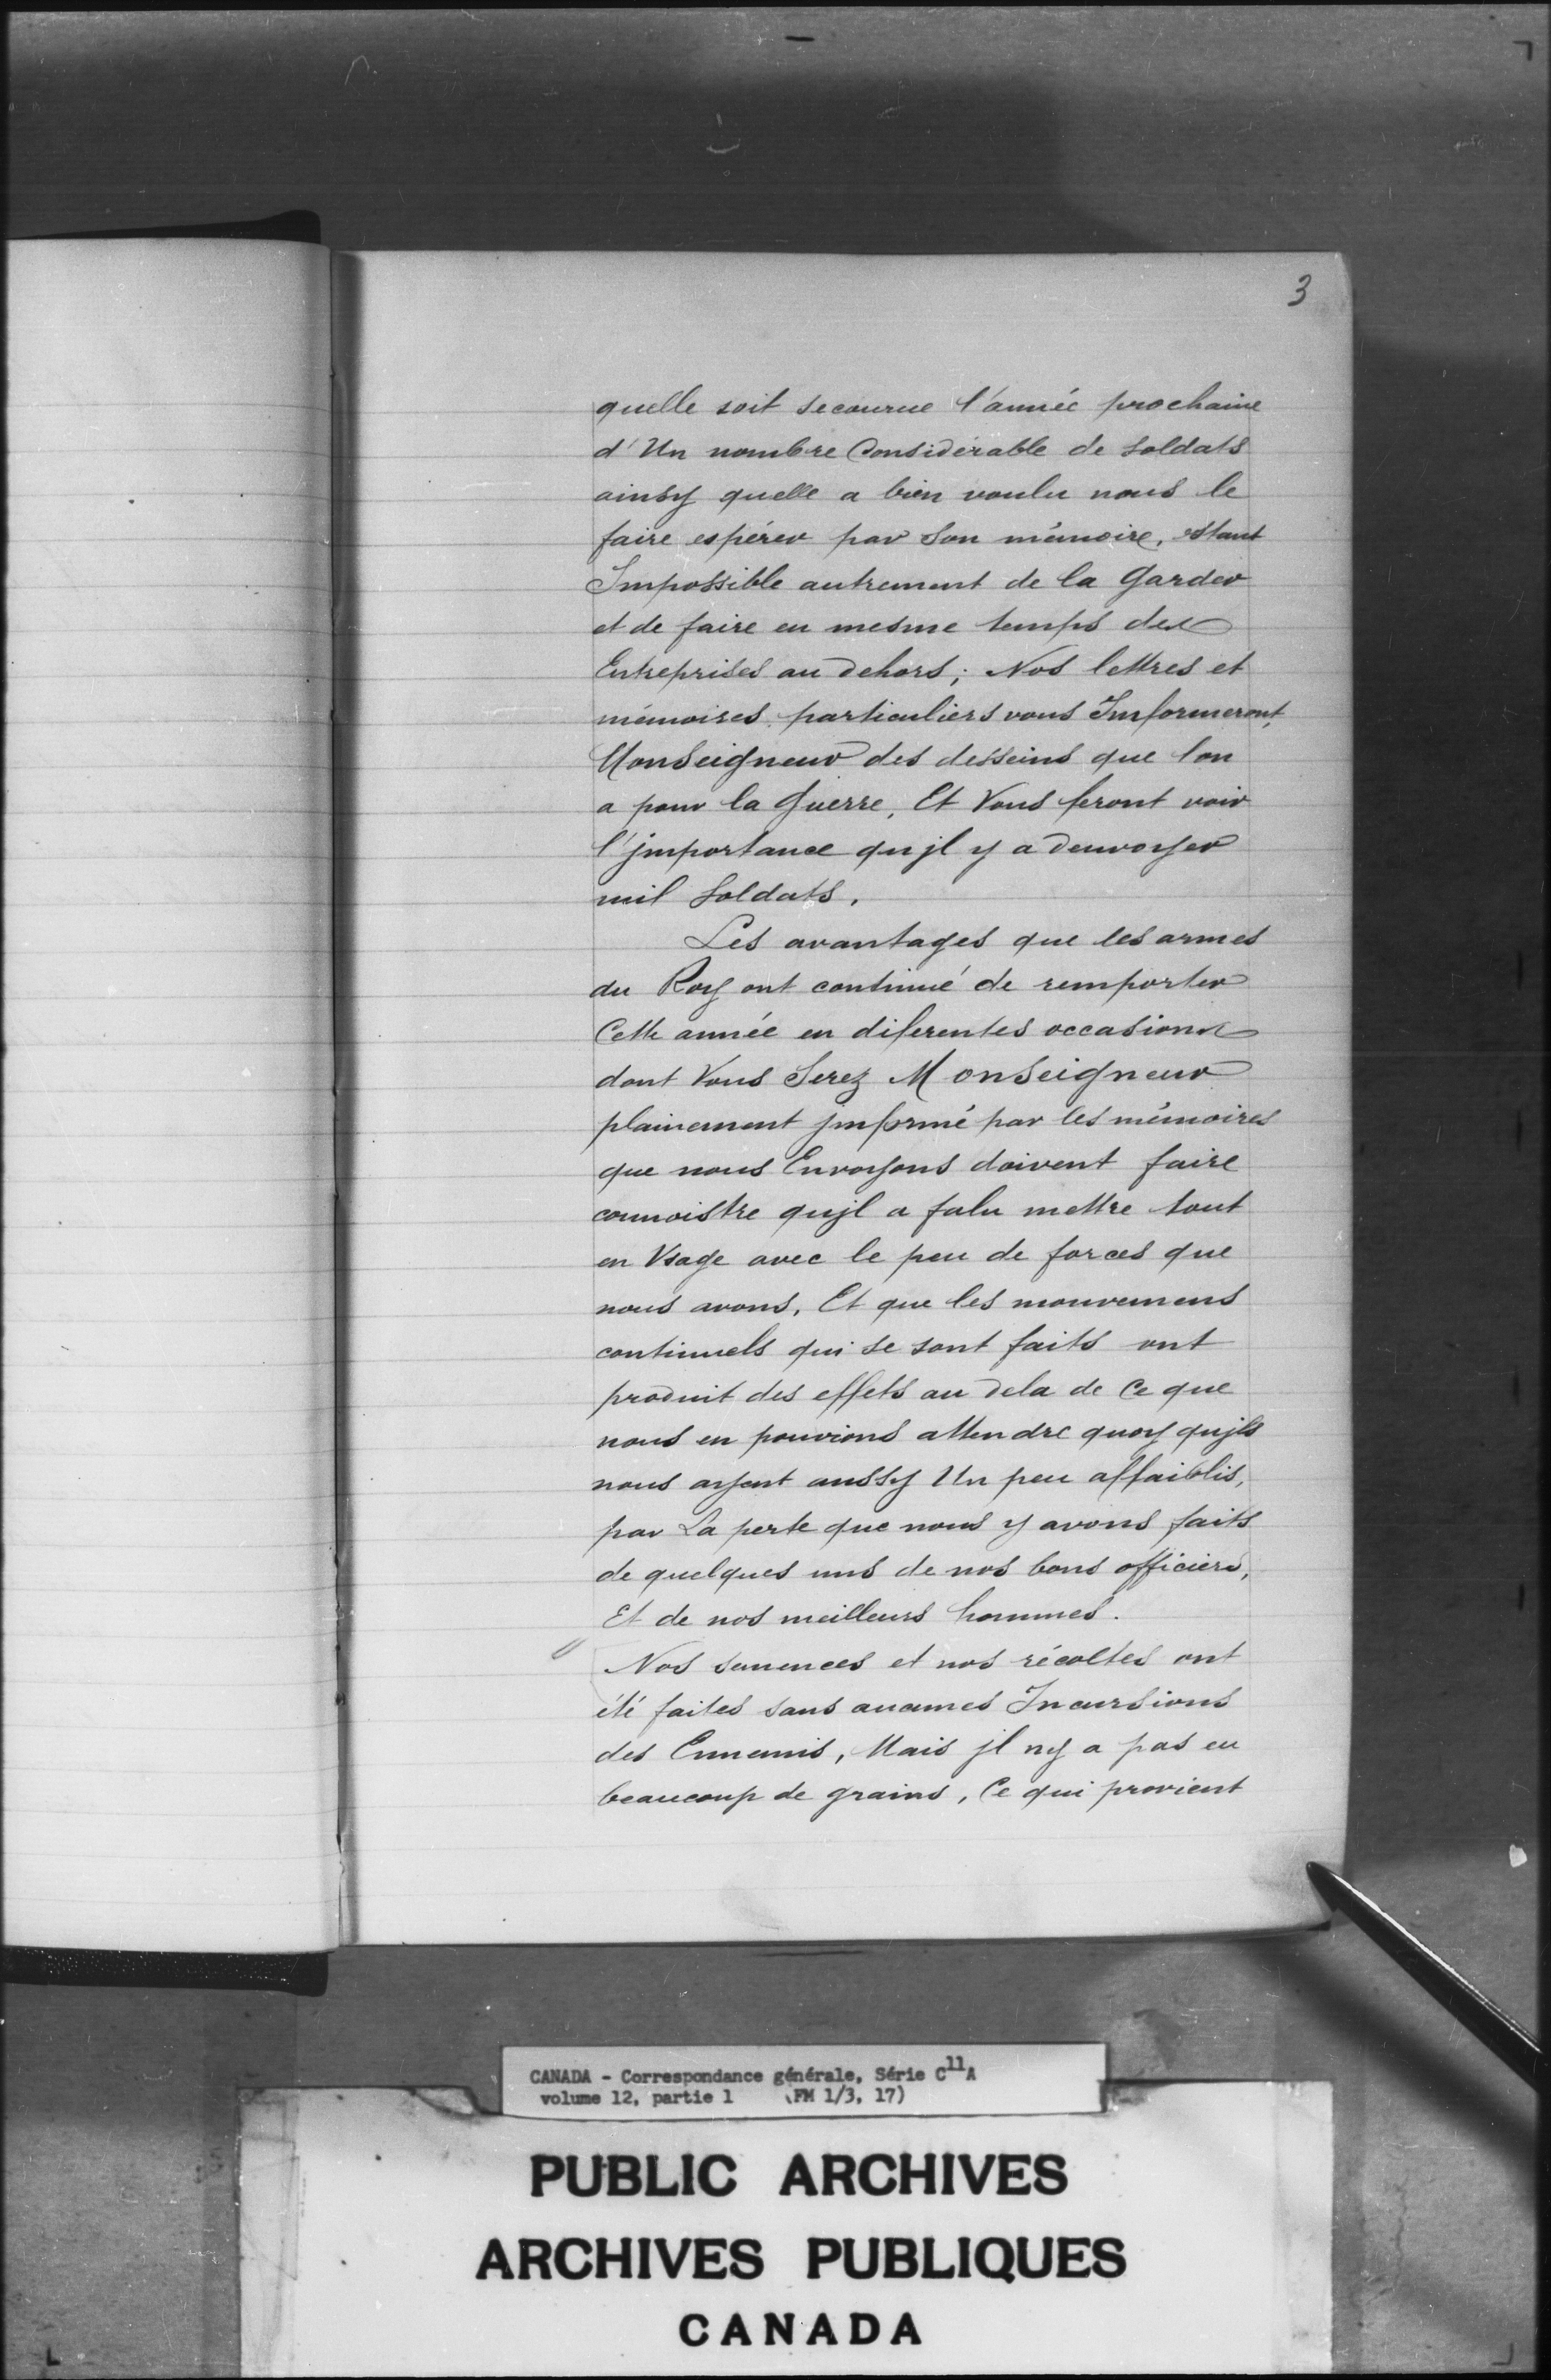 3
quelle soit secourue l'année prochaine
d'Un nombre Considérable de soldats
ainsy quelle a bien voulu nous le
faire espérer par son mémoire, estant
Impossible autrement de la Garder
et de faire en mesme temps des
Entreprises au dehors; Nos lettres et
mémoires particuliers vous Imformeront,
Monseigneur des desseins que lon
a pour la guerre, Et Vous feront voir
l'jmportance qujl y a denvoyer
mil soldats.
Les avantages que les armes
du Roy ont continué de remporter
Cette année en diferentes occasions
dont Vous Serez Monseigneur
plainement jnformé par les mémoires
que nous Envoyons doivent faire
connoistre qujl a falu mettre tout
en Vsage avec le peu de forces que
nous avons, Et que les mouvemens
continuels qui se sont faits ont
produit des effets au dela de Ce que
nous en pouvions attendre quoy qujls
nous ayent aussy Un peu affaiblis,
par La perte que nous y avons faits
de quelques uns de nos bons officiers,
Et de nos meilleurs hommes.
Nos semences et nos récoltes ont
été faites sans aucunes Incursions
des Ennemis, Mais jl ny a pas eu
beaucoup de grains, Ce qui provient
CANADA - Correspondance générale, Série C11A
volume 12, partie 1 (FM 1/3, 17)
PUBLIC ARCHIVES
ARCHIVES PUBLIQUES
CANADA